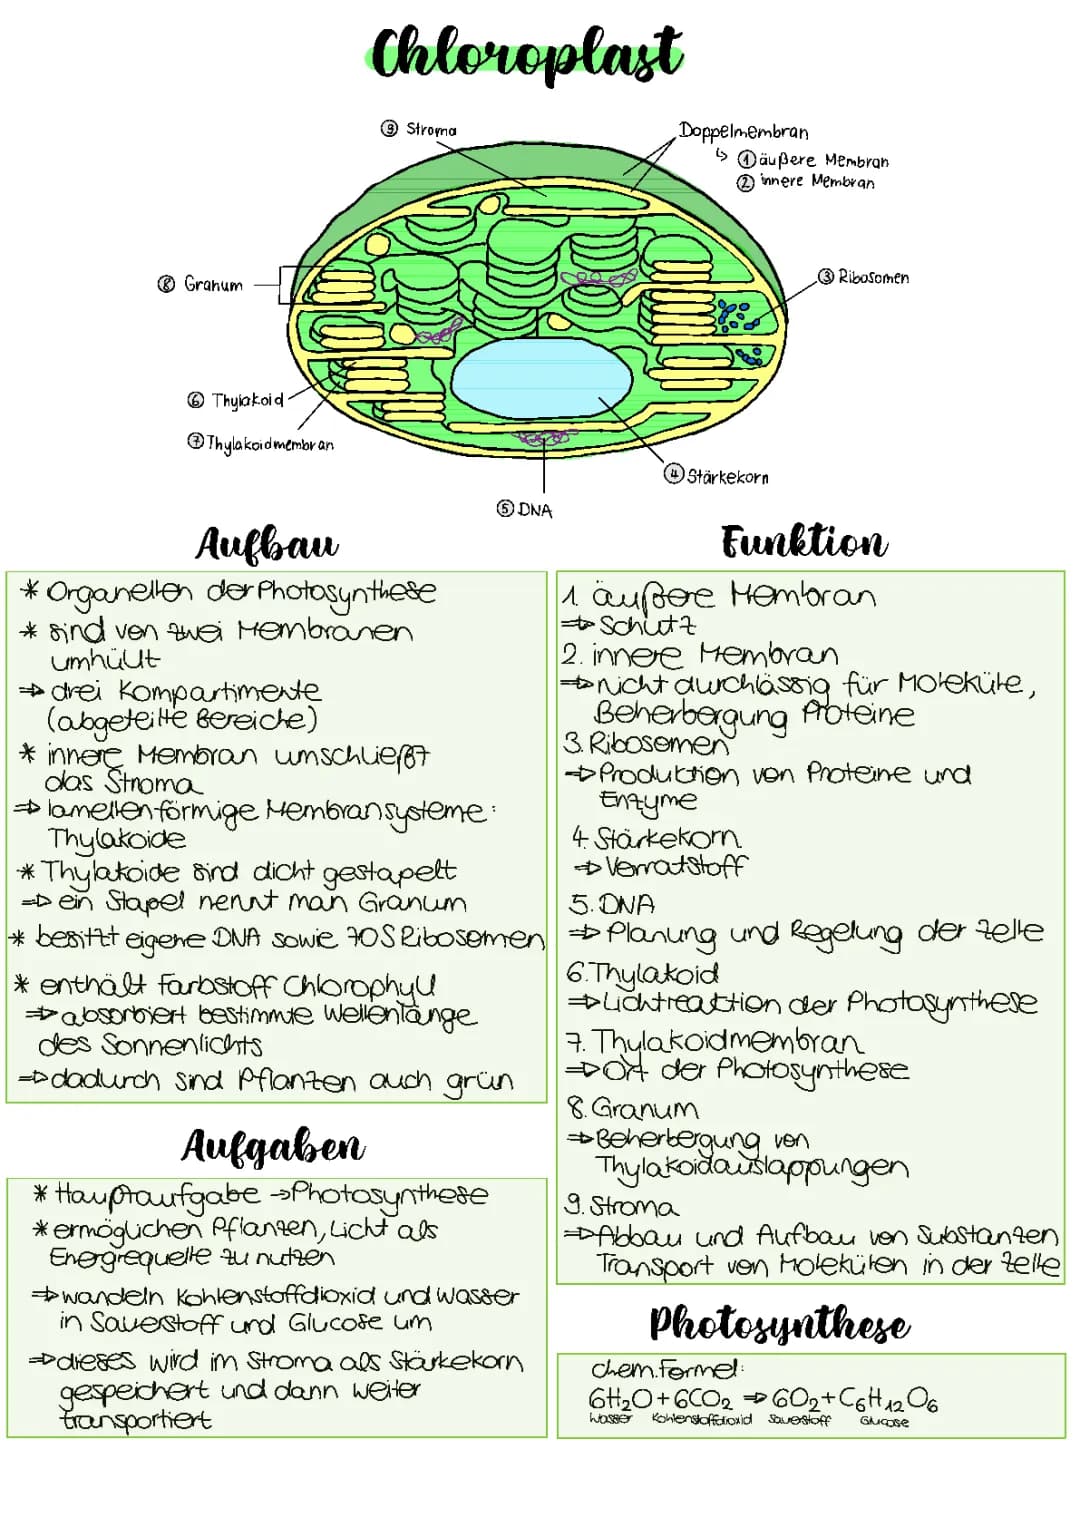 Chloroplast
⑨ Stroma
Doppelmembran
↳ ① äußere Membran
② innere Membran
⑧ Granum
③ Ribosomen
⑥ Thylakoid
⑦ Thylakoidmembran
④ Stärkekorn
⑤ DNA
Aufbau
* Organellen der Photosynthese
* sind von zwei Membranen
umhüllt
⇒ drei Kompartimente
(abgeteilte Bereiche)
* innere Membran umschließt
das Stroma
⇒ lamellenförmige Membransysteme:
Thylakoide
* Thylakoide sind dicht gestapelt
⇒ ein Stapel nennt man Granum
* besitzt eigene DNA sowie 70S Ribosomen
* enthält Farbstoff Chlorophyll
⇒ absorbiert bestimmte Wellenlänge
des Sonnenlichts
⇒ dadurch sind Pflanzen auch grün
Aufgaben
* Hauptaufgabe → Photosynthese
* ermöglichen Pflanzen, Licht als
Energrequelle zu nutzen
⇒ wandeln Kohlenstoffdioxid und Wasser
in Sauerstoff und Glucose um
⇒ dieses wird im Stroma als Stärkekorn
gespeichert und dann weiter
transportiert
Funktion
1. äußere Membran
⇒ Schutz
2. innere Membran
⇒ nicht durchlässig für Moleküle,
Beherbergung Proteine
3. Ribosomen
⇒ Produktion von Proteine und
Enzyme
4. Stärkekorn
⇒ Vorratstoff
5. DNA
⇒ Planung und Regelung der Zelle
6. Thylakoid
⇒ Lichtreaktion der Photosynthese
7. Thylakoidmembran
⇒ Ort der Photosynthese
8. Granum
⇒ Beherbergung von
Thylakoidauslappungen
9. Stroma
⇒ Abbau und Aufbau von Substanzen
Transport von Molekülen in der Zelle
Photosynthese
chem. Formel:
6H₂O + 6CO₂ ⇒ 6O₂ + C₆H₁₂O₆
Wasser Kohlenstoffdioxid Sauerstoff Glucose